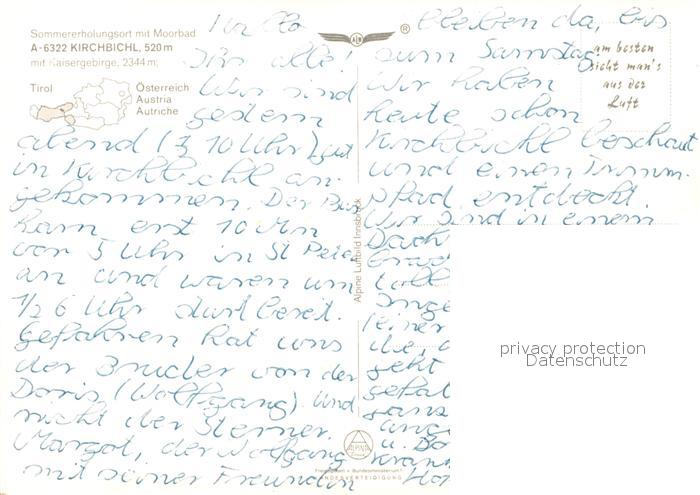 Sommererholungsort mit Moorbad
A-6322 KIRCHBICHL, 520 m
mit Kaisergebirge, 2344 m;
Tirol
Österreich
Austria
Autriche
Hallo
Ihr alle!
Wir sind
gestern
abend (¾ 10 Uhr) gut
in Kirchbichl an-
gekommen. Der Bus
kam erst 10 Min
vor 5 Uhr in St Peter
an und waren um
½ 6 Uhr dort bereit.
Gefahren hat uns
der Bruder von der
Doris (Wolfgang). Und
nicht der Sterner.
Margot, der Wolfgang
mit seiner Freundin
Alpine Luftbild Innsbruck
bleiben da, bis
zum Samstag.
Wir haben
heute schon
Kirchbichl beschaut
und einen Trimm-
pfad entdeckt.
Wir sind in einem
Dach
geht
gefal
ganz
u. Do
am besten
sieht man's
aus der
Luft
ALPINE
Freigegeben v. Bundesministerium f.
LANDESVERTEIDIGUNG
privacy protection
Datenschutz